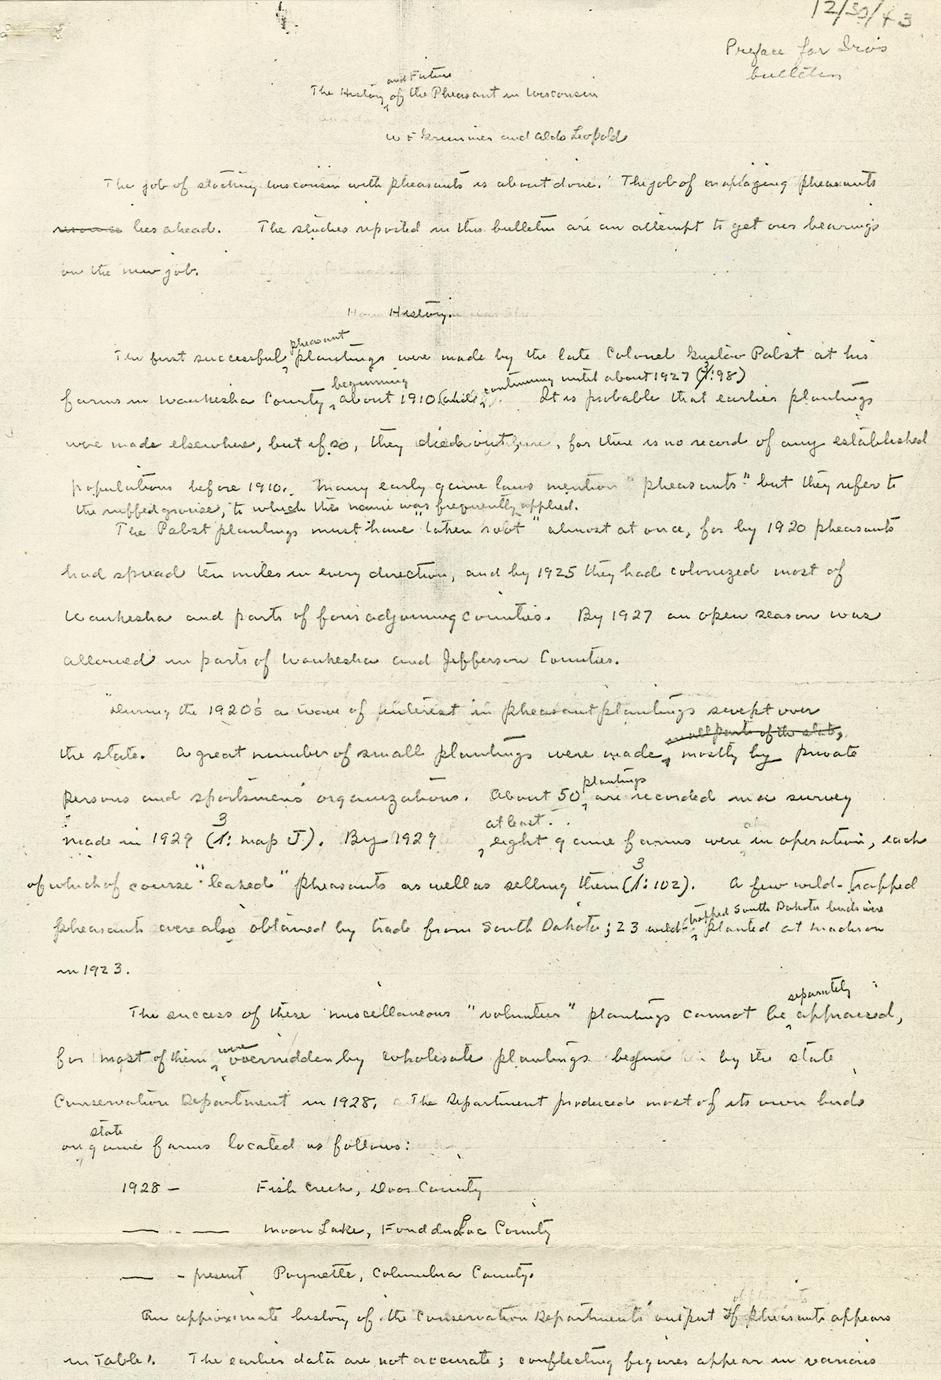 12/30/43
Preface for Iro's
bulletin
The History and Future of the Pheasant in Wisconsin
W F Grimmer and Aldo Leopold
The job of stocking Wisconsin with pheasants is about done. The job of managing pheasants
lies ahead. The studies reported in this bulletin are an attempt to get our bearings
on the new job.
History.
The first successful pheasant plantings were made by the late Colonel Gustav Pabst at his
farms in Waukesha County, beginning about 1910 continuing until about 1927 (3:98) It is probable that earlier plantings
were made elsewhere, but if so, they died out, for there is no record of any established
populations before 1910. Many early game laws mention "pheasants" but they refer to
the ruffed grouse, to which this name was frequently applied.
The Pabst plantings must have "taken root" almost at once, for by 1920 pheasants
had spread ten miles in every direction, and by 1925 they had colonized most of
Waukesha and parts of four adjoining counties. By 1927 an open season was
allowed in parts of Waukesha and Jefferson Counties.
During the 1920's a wave of interest in pheasant plantings swept over
the state. A great number of small plantings were made, small parts of the state, mostly by private
persons and sportsmens organizations. About 50 plantings are recorded in a survey
made in 1929 (3: map J). By 1929 at least eight game farms were in operation, each
of which of course "leaked" pheasants as well as selling them (3:102). A few wild-trapped
pheasants were also obtained by trade from South Dakota; 23 wild-trapped South Dakota birds were planted at Madison
in 1923.
The success of these miscellaneous "volunteer" plantings cannot be separately appraised,
for most of them were overridden by wholesale plantings begun by the state
Conservation Department in 1928. The Department produced most of its own birds
on state game farms located as follows:
1928 – Fish Creek, Door County
— - — Moon Lake, Fond du Lac County
— - present Poynette, Columbia County.
An approximate history of the Conservation Departments' output of pheasants appears
in Table 1. The earlier data are not accurate; conflicting figures appear in various